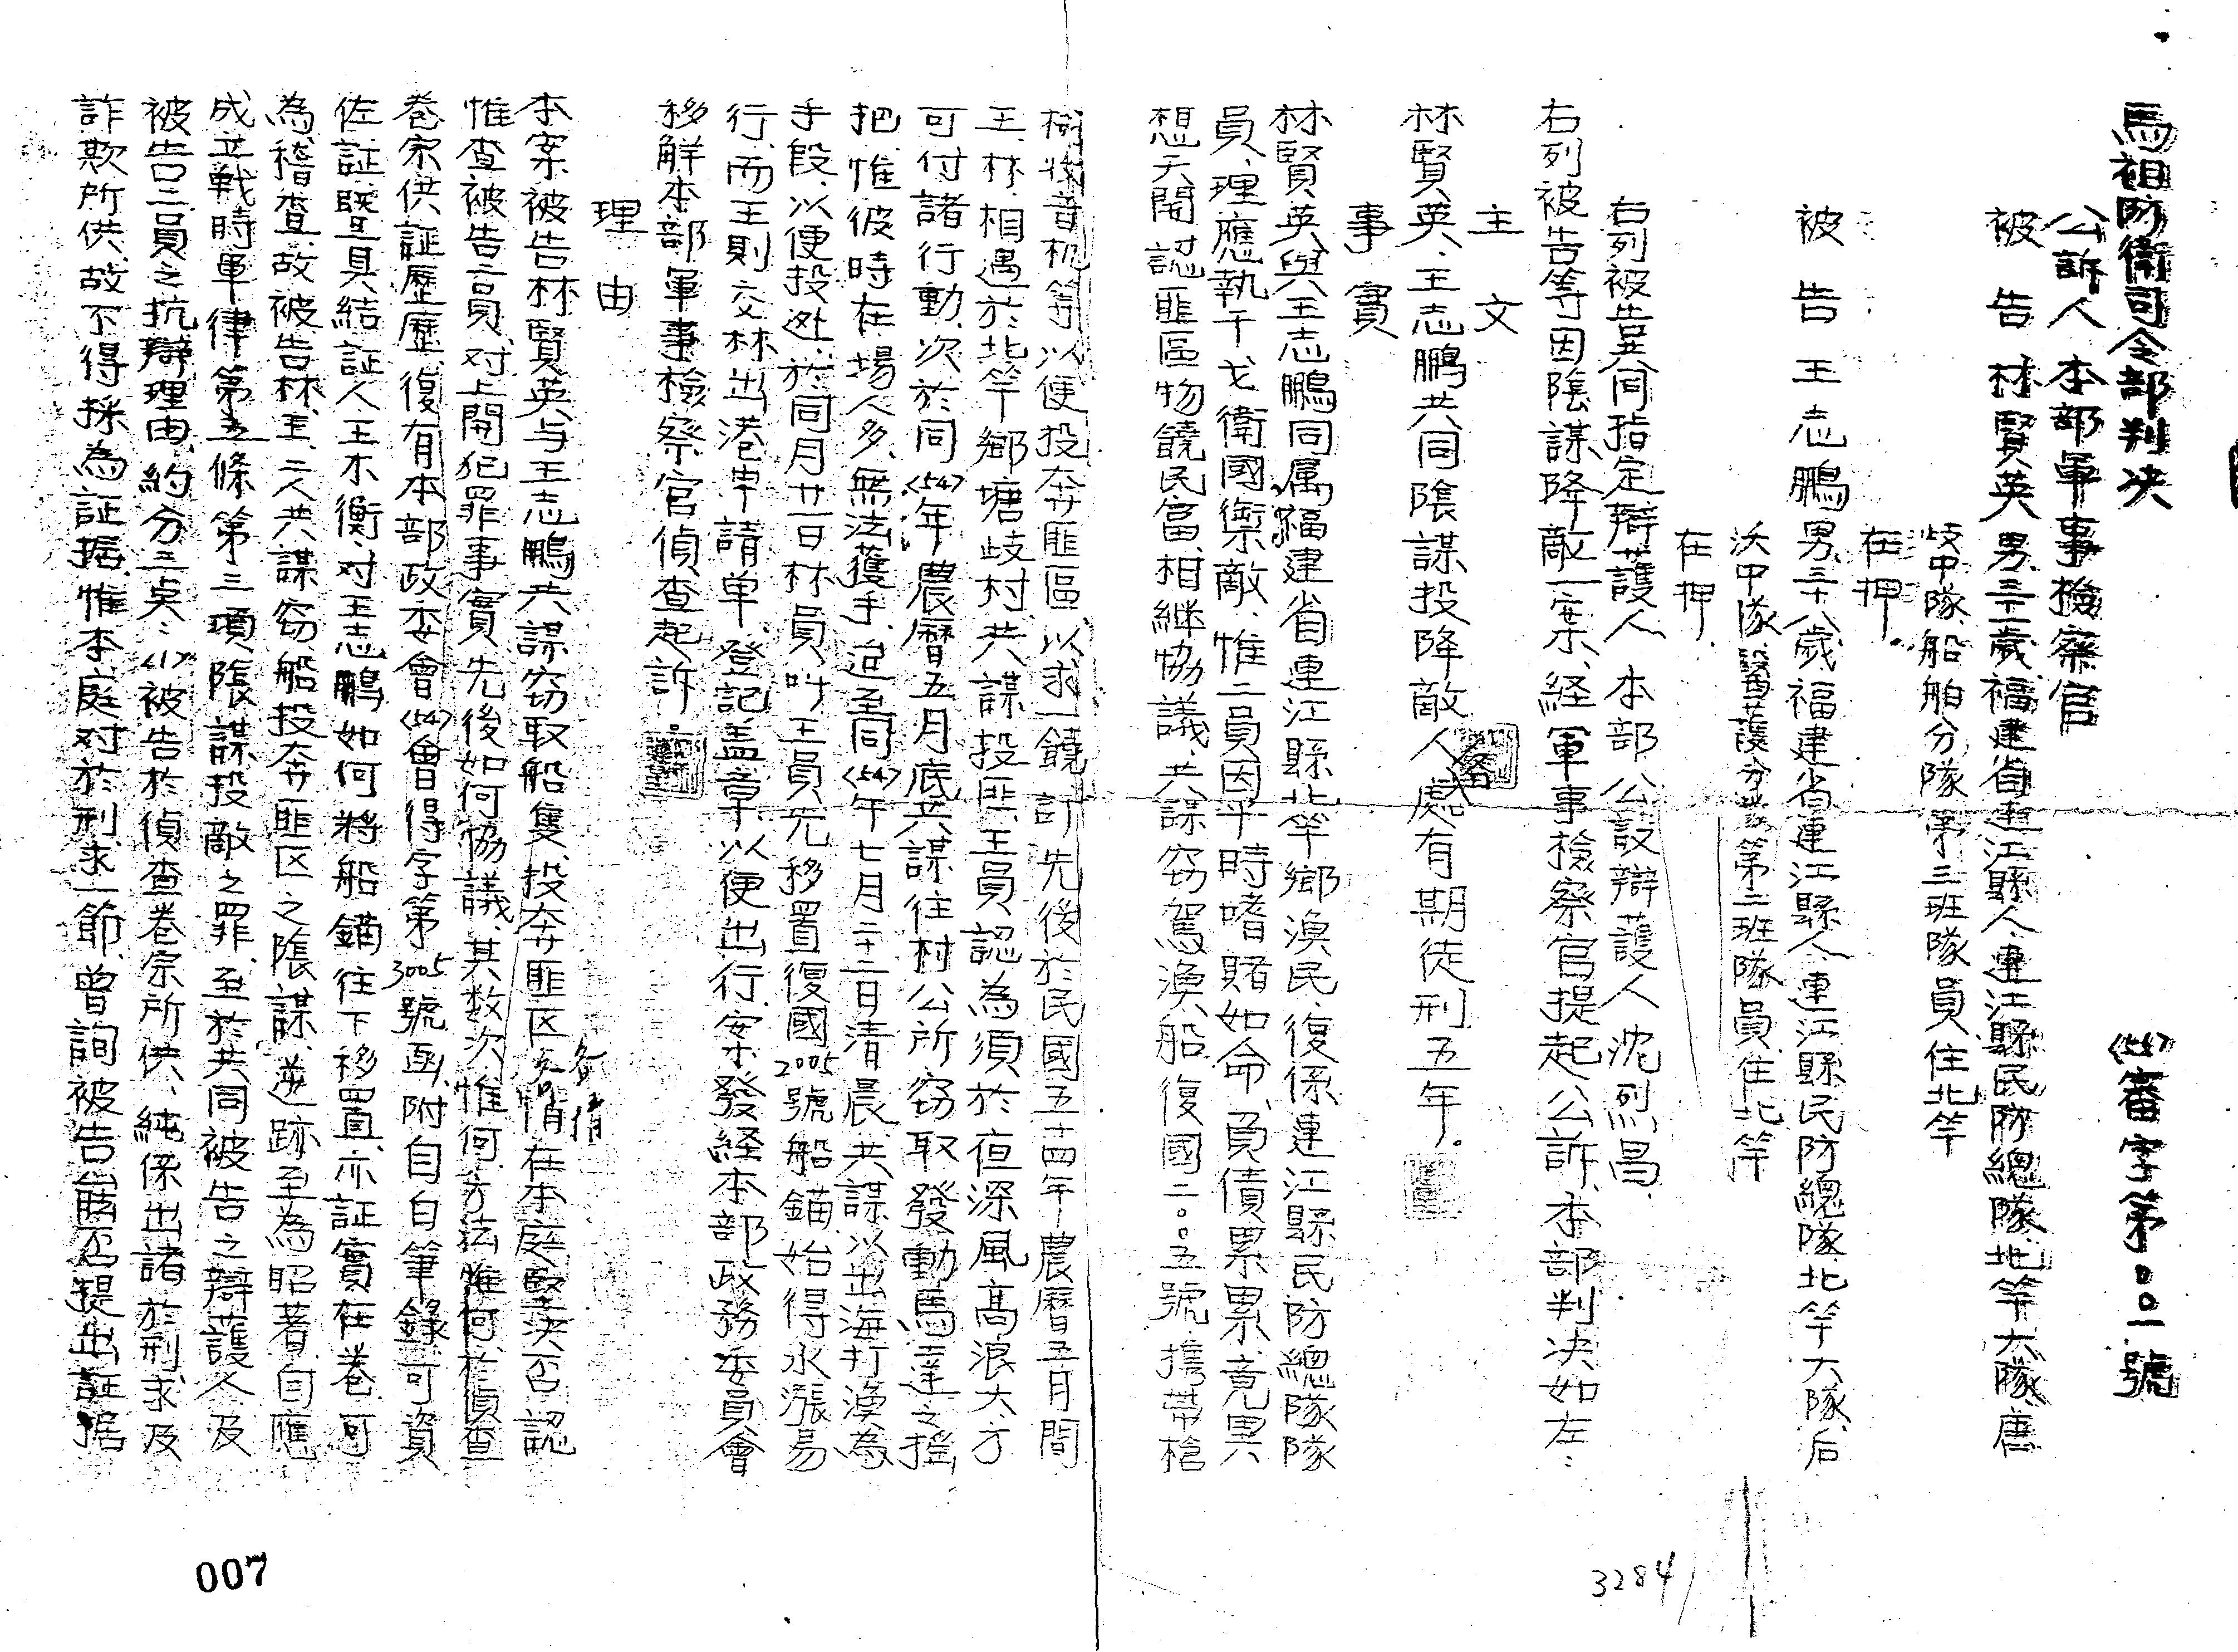 馬祖防衛司令部判決
審字第〇〇一號
公訴人 本部軍事檢察官
被告 林賢英 男、三十一歲、福建省連江縣人、連江縣民防總隊、北竿大隊、唐
岐中隊、船舶分隊、第三班隊員、住北竿
在押.
被告 王志鵬 男、三十八歲福建省連江縣人、連江縣民防總隊、北竿大隊、后
沃中隊、醫護分隊、第三班隊員、住北竿
在押.
右列被告共同指定辯護人 本部公設辯護人沈烈昌.
右列被告等因陰謀降敵一案、経軍事檢察官提起公訴、本部判決如左:
主文
林賢英、王志鵬共同陰謀投降敵人處有期徒刑五年.
事實
林賢英與王志鵬同属福建省連江縣北竿鄉漁民、復係連江縣民防總隊隊
員、理應執干戈、衛國禦敵、惟二員因平時嗜賭如命、負債累累、竟異
想天開、認匪區物饒民富、相継協議、共謀窃駕漁船、復國二〇〇五號、携帶槍
械、收音机等、以便投奔匪區、以求一饒、訂先後於民國五十四年農曆五月間
王、林、相遇於北竿鄉塘歧村、共謀投匪、王員認為須於夜深風高浪大、方
可付諸行動、次於同〈54〉年農曆五月底共謀往村公所窃取發動馬達之搖
把、惟彼時在場人多、無法獲手、迨至同〈54〉年七月二十二日清晨、共謀以出海打漁為
手段、以便投逃、於同月廿一日林員叫王員先移置復國2005號船錨、始得水漲易
行、而王則交林出港申請单、登記盖章、以便出行、案發経本部政務委員會
移解本部軍事檢察官偵查起訴.
理由
本案被告林賢英与王志鵬共謀窃取船隻、投奔匪区各情在本庭堅決否認
惟查被告二員、对上開犯罪事實先後如何協議、其数次惟何、方法惟何、於偵查
卷宗供証歷歷、復有本部政委會〈54〉曾得字第3005號函、附自白筆錄、可資
佐証、暨具結証人王木衡、对王志鵬如何將船錨往下移置、亦証實在卷、可
為稽查、故被告林、王、二人共謀窃船投奔匪区之陰謀、逆跡至為昭著、自應
成立戰時軍律第五條第三項陰謀投敵之罪、至於共同被告之辯護人及
被告二員之抗辯理由、約分三点:〈1〉被告於偵查卷宗所供、純係出諸於刑求及
詐欺所供、故不得採為証据、惟本庭对於刑求一節、曾詢被告能否提出証据
007
3284